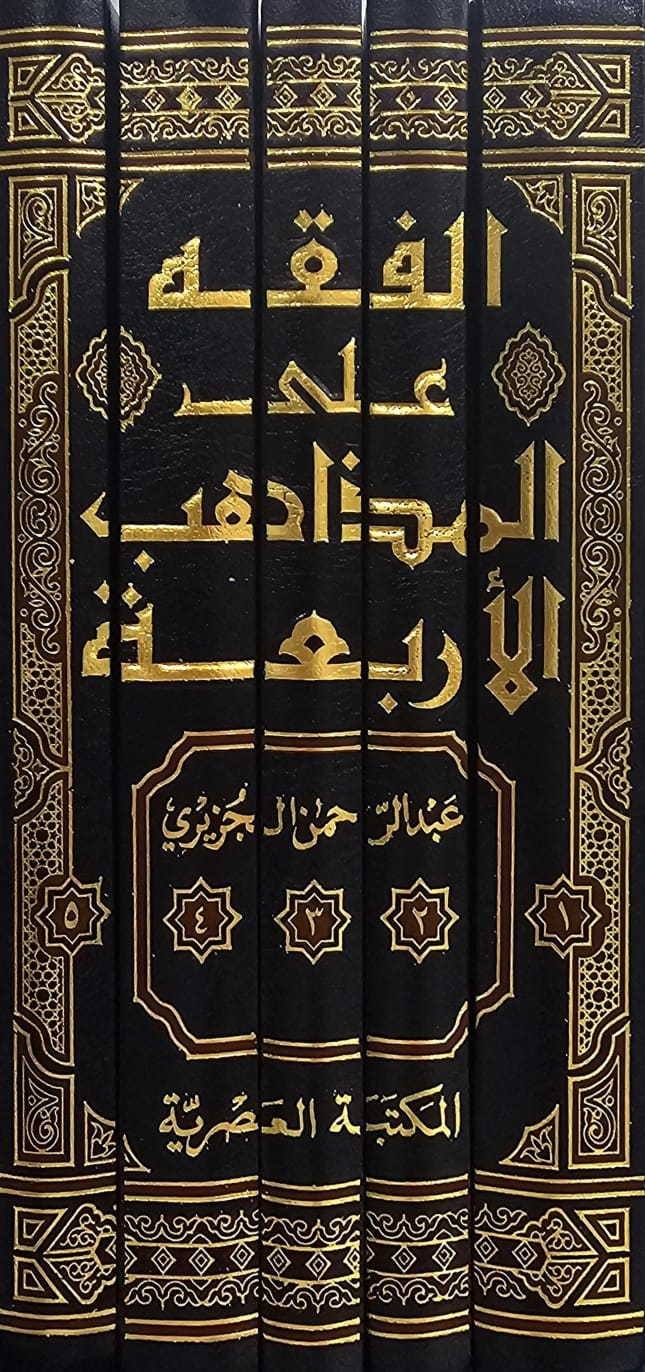 الفقه
على
المذاهب
الأربعة
عَبْدالرّحمٰن الجُزيْري
١ ٢ ٣ ٤ ٥
المَكتَبَة العَصْريّة